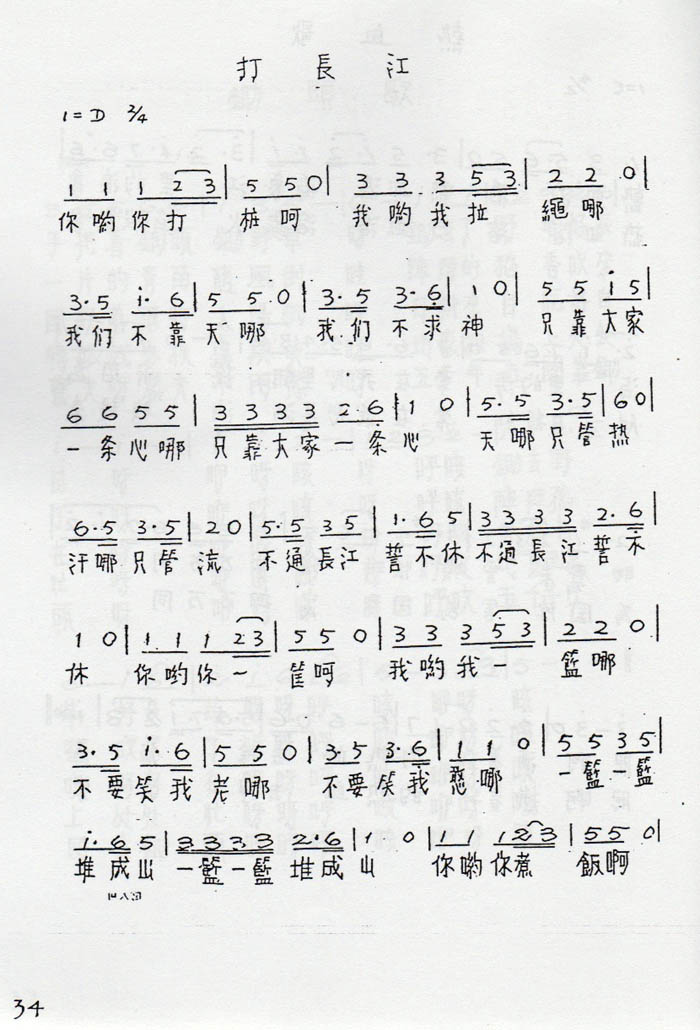 打 長 江
1=D 2/4
1 1 1 2 3 | 5 5 0 | 3 3 3 5 3 | 2 2 0 |
你哟你打 桩呵 我哟我拉 繩哪
3·5 i·6 | 5 5 0 | 3·5 3·6 | 1 0 | 5 5 i 5 |
我们不靠天哪 我们不求神 只靠大家
6 6 5 5 | 3 3 3 3 2·6 | 1 0 | 5·5 3·5 | 6 0 |
一条心哪 只靠大家一条心 天哪只管热
6·5 3·5 | 2 0 | 5·5 3 5 | 1·6 5 | 3 3 3 3 2·6 |
汗哪只管流 不通長江誓不休不通長江誓不
1 0 | 1 1 1 2 3 | 5 5 0 | 3 3 3 5 3 | 2 2 0 |
休 你哟你一 筐呵 我哟我一 籃哪
3·5 i·6 | 5 5 0 | 3·5 3·6 | 1 1 0 | 5 5 3 5 |
不要笑我老哪 不要笑我憨哪 一籃一籃
i·6 5 | 3 3 3 3 2·6 | 1 0 | 1 1 1 2 3 | 5 5 0 |
堆成山 一籃一籃堆成山 你哟你煮 飯啊
34